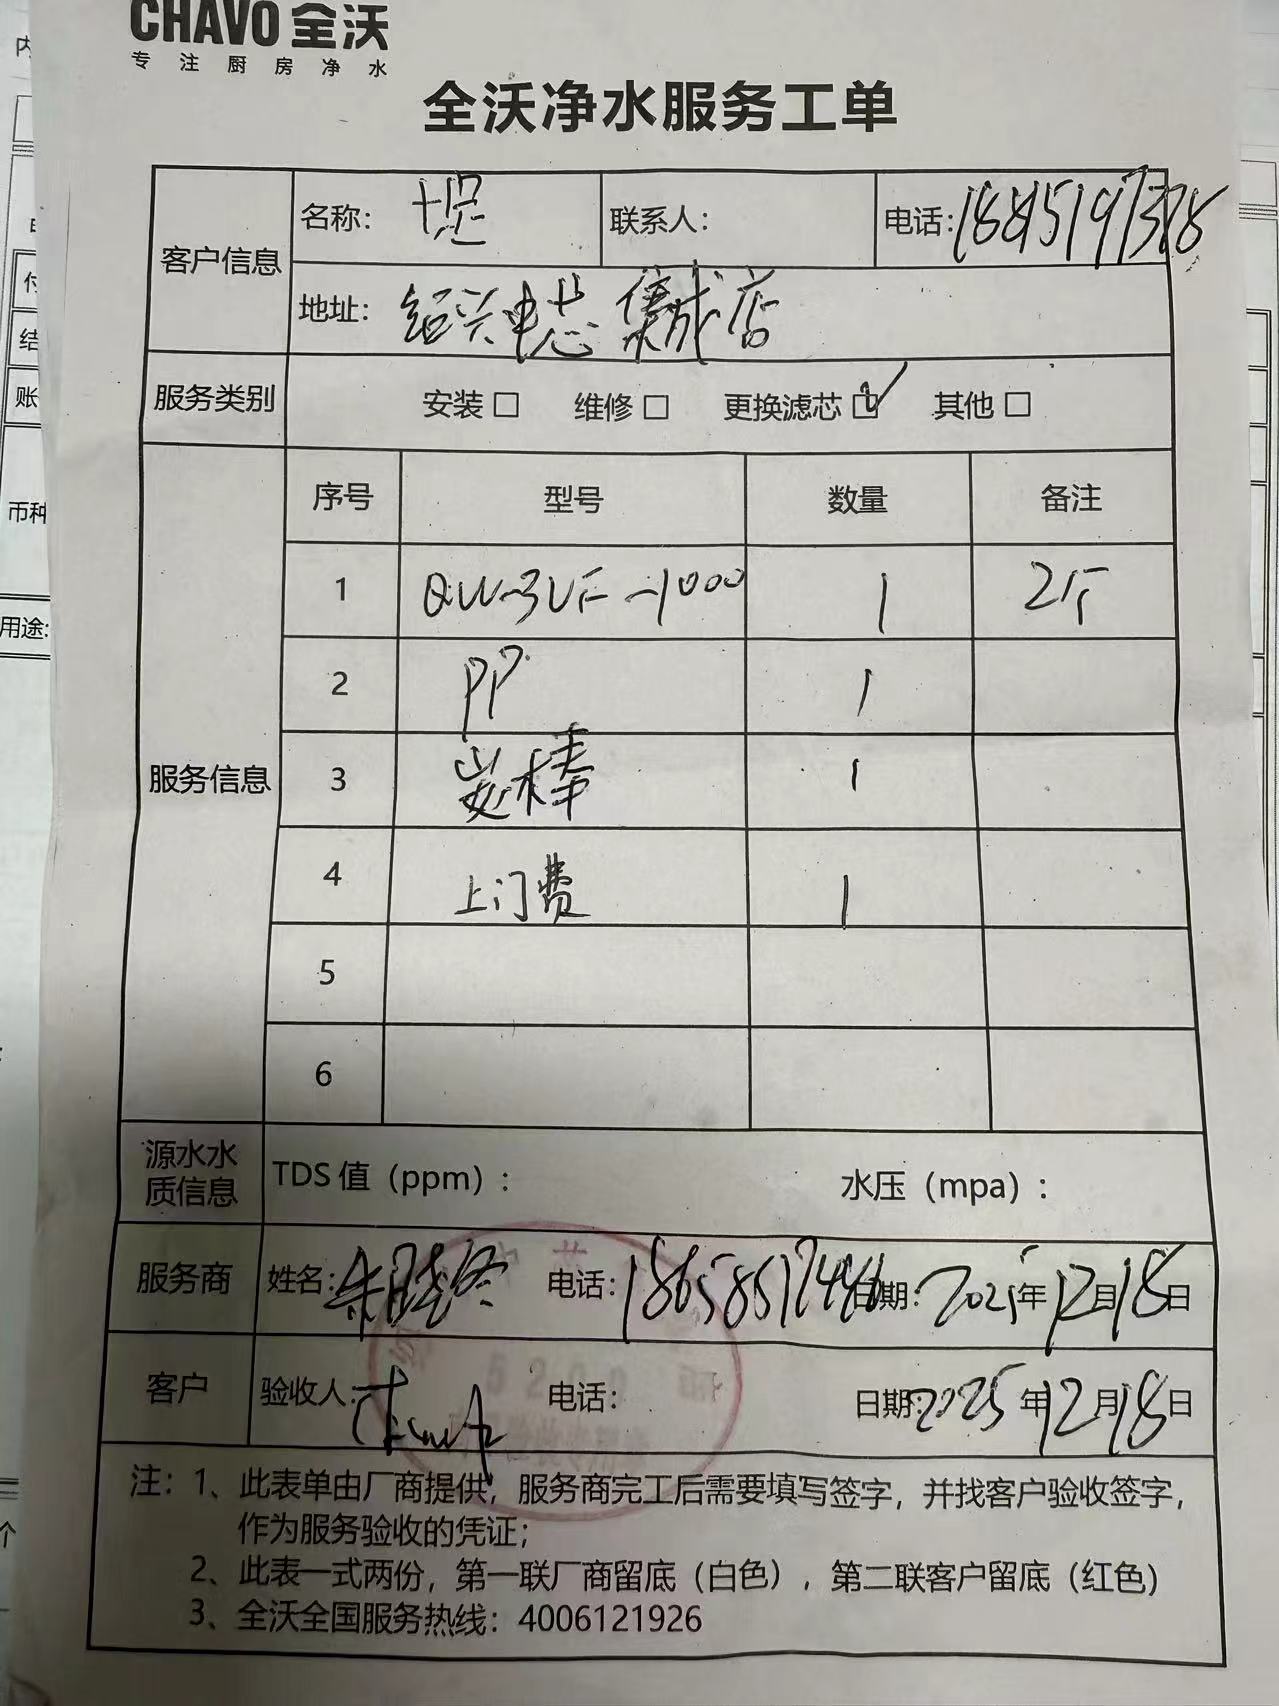 CHAVO 全沃
专注厨房净水
全沃净水服务工单
客户信息
名称： 堤
联系人：
电话：
地址：绍兴中芯集成店
服务类别
安装□ 维修□ 更换滤芯☑ 其他□
服务信息
序号 型号 数量 备注
1 QW-3UF-1000 1 2厅
2 PP 1
3 炭棒 1
4 上门费 1
5
6
源水水质信息
TDS 值（ppm）： 水压（mpa）：
服务商 姓名： 电话：18658517486 日期：2025年12月18日
客户 验收人： 电话： 日期：2025年12月18日
注：1、此表单由厂商提供，服务商完工后需要填写签字，并找客户验收签字，
作为服务验收的凭证；
2、此表一式两份，第一联厂商留底（白色），第二联客户留底（红色）
3、全沃全国服务热线：4006121926
内
结
账
币种
用途:
个